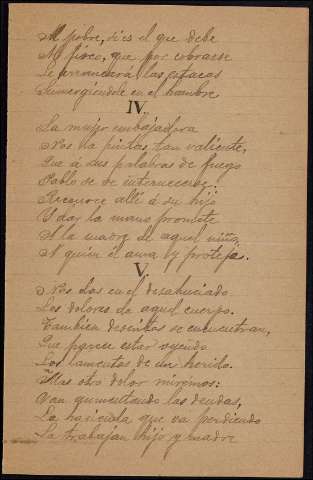 Al pobre, si es el que debe
Al fisco, que por cobrarse
Le arrancará las estacas
Sumergiéndole en el hambre
IV.
La mujer embajadora
Nos ha pintao tan valiente,
Que á sus palabras de fuego
Pablo se ve enternecerse:
Reconoce allí á su hijo
Y dar la mano promete
A la madre de aquel niño
A quien él ama y proteje.
V.
Nos das en el desahuciado
Los dolores de aquel cuerpo.
También descritos se encuentran,
Que parece estar oyendo
Los lamentos de un herido.
Mas otro dolor mirémos:
Van aumentando las deudas,
La hacienda que va perdiendo
La trabajan hijo y madre